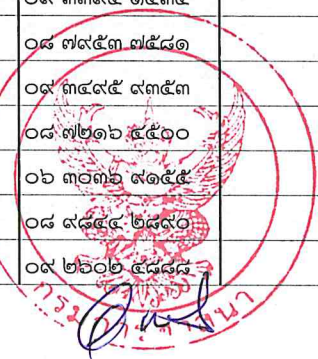 ๐๘ ๗๙๕๓ ๗๕๘๑
๐๙ ๓๔๙๕ ๙๓๕๓
๐๘ ๗๒๑๖ ๕๕๐๐
๐๖ ๓๐๓๖ ๙๑๕๕
๐๘ ๙๘๔๔ ๒๘๙๐
๐๙ ๒๖๐๒ ๕๘๘๘